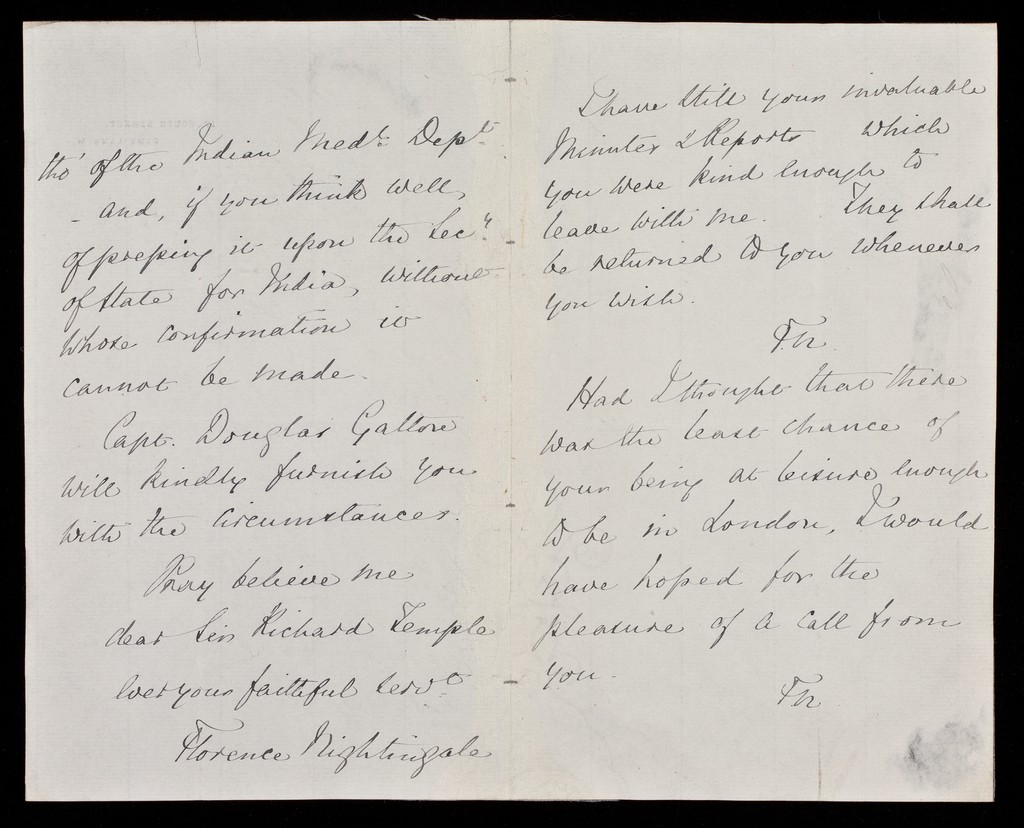 tho' of the Indian Medl. Dept.
- and, if you think well,
of pressing it upon the Secy.
of State for India, without
whose confirmation it
cannot be made.
Capt. Douglas Galton
will kindly furnish you
with the circumstances.
Pray believe me
dear Sir Richard Temple
ever your faithful servt.
Florence Nightingale
I have still your invaluable
Minutes & Reports which
you were kind enough to
leave with me. They shall
be returned to you whenever
you wish.
FN.
Had I thought that there
was the least chance of
your being at leisure enough
to be in London, I would
have hoped for the
pleasure of a call from
you.
FN